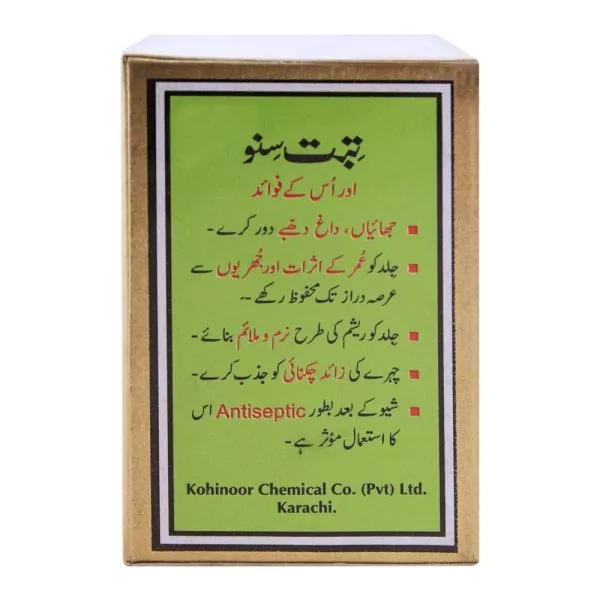 تِبت سِنو
اور اُس کے فوائد
■ جھائیاں، داغ دھبّے دور کرے۔
■ جِلد کو عُمر کے اثرات اور جُھریوں سے
عرصہ دراز تک محفوظ رکھے ۔۔
■ جِلد کو ریشم کی طرح نرم و ملائم بنائے۔
■ چہرے کی زائد چکنائی کو جذب کرے۔
■ شیو کے بعد بطور Antiseptic اس
کا استعمال مؤثر ہے۔
Kohinoor Chemical Co. (Pvt) Ltd.
Karachi.